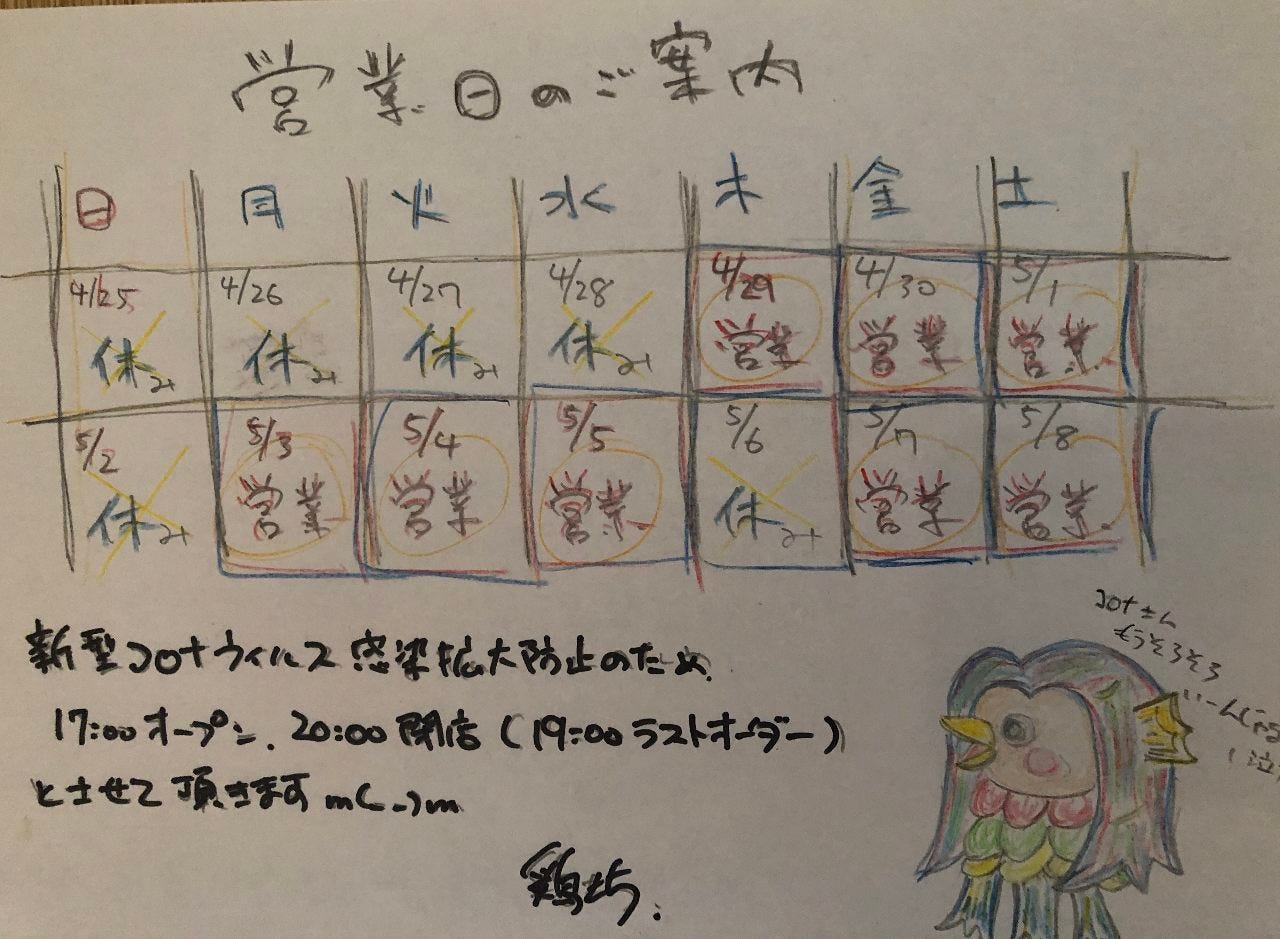 営業日のご案内
日 月 火 水 木 金 土
4/25 4/26 4/27 4/28 4/29 4/30 5/1
休 休 休 休 営業 営業 営業
5/2 5/3 5/4 5/5 5/6 5/7 5/8
休 営業 営業 営業 休 営業 営業
新型コロナウィルス感染拡大防止のため、
17:00オープン、20:00閉店(19:00ラストオーダー)
とさせて頂きますm(_ _)m
コロナさん
もうそろそろ
いーんじゃ
(泣